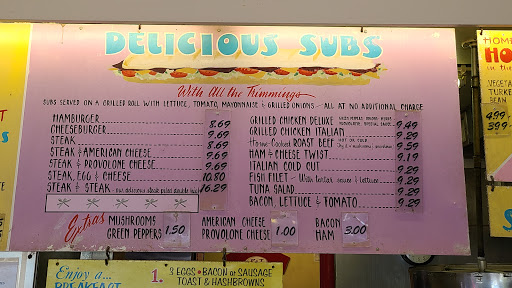 DELICIOUS SUBS
With All the Trimmings
SUBS SERVED ON A GRILLED ROLL WITH LETTUCE, TOMATO, MAYONNAISE & GRILLED ONIONS - ALL AT NO ADDITIONAL CHARGE
HAMBURGER 8.69
CHEESEBURGER 9.69
STEAK 8.69
STEAK & AMERICAN CHEESE 9.69
STEAK & PROVOLONE CHEESE 9.69
STEAK, EGG & CHEESE 10.80
STEAK & STEAK - our delicious steak piled double high 16.29
GRILLED CHICKEN DELUXE 9.49
GRILLED CHICKEN ITALIAN 9.29
Home-Cooked ROAST BEEF HOT OR COLD 9.59
HAM & CHEESE TWIST 9.19
ITALIAN COLD CUT 9.29
FISH FILET - With tartar sauce & lettuce 9.29
TUNA SALAD 9.29
BACON, LETTUCE & TOMATO 9.29
Extras
MUSHROOMS
GREEN PEPPERS 1.50
AMERICAN CHEESE
PROVOLONE CHEESE 1.00
BACON
HAM 3.00
HOME
HO
in the
VEGETA
TURKE
BEAN
4.99
3.99
Enjoy a...
BREAKFAST
1. 3 EGGS • BACON or SAUSAGE
TOAST & HASHBROWNS